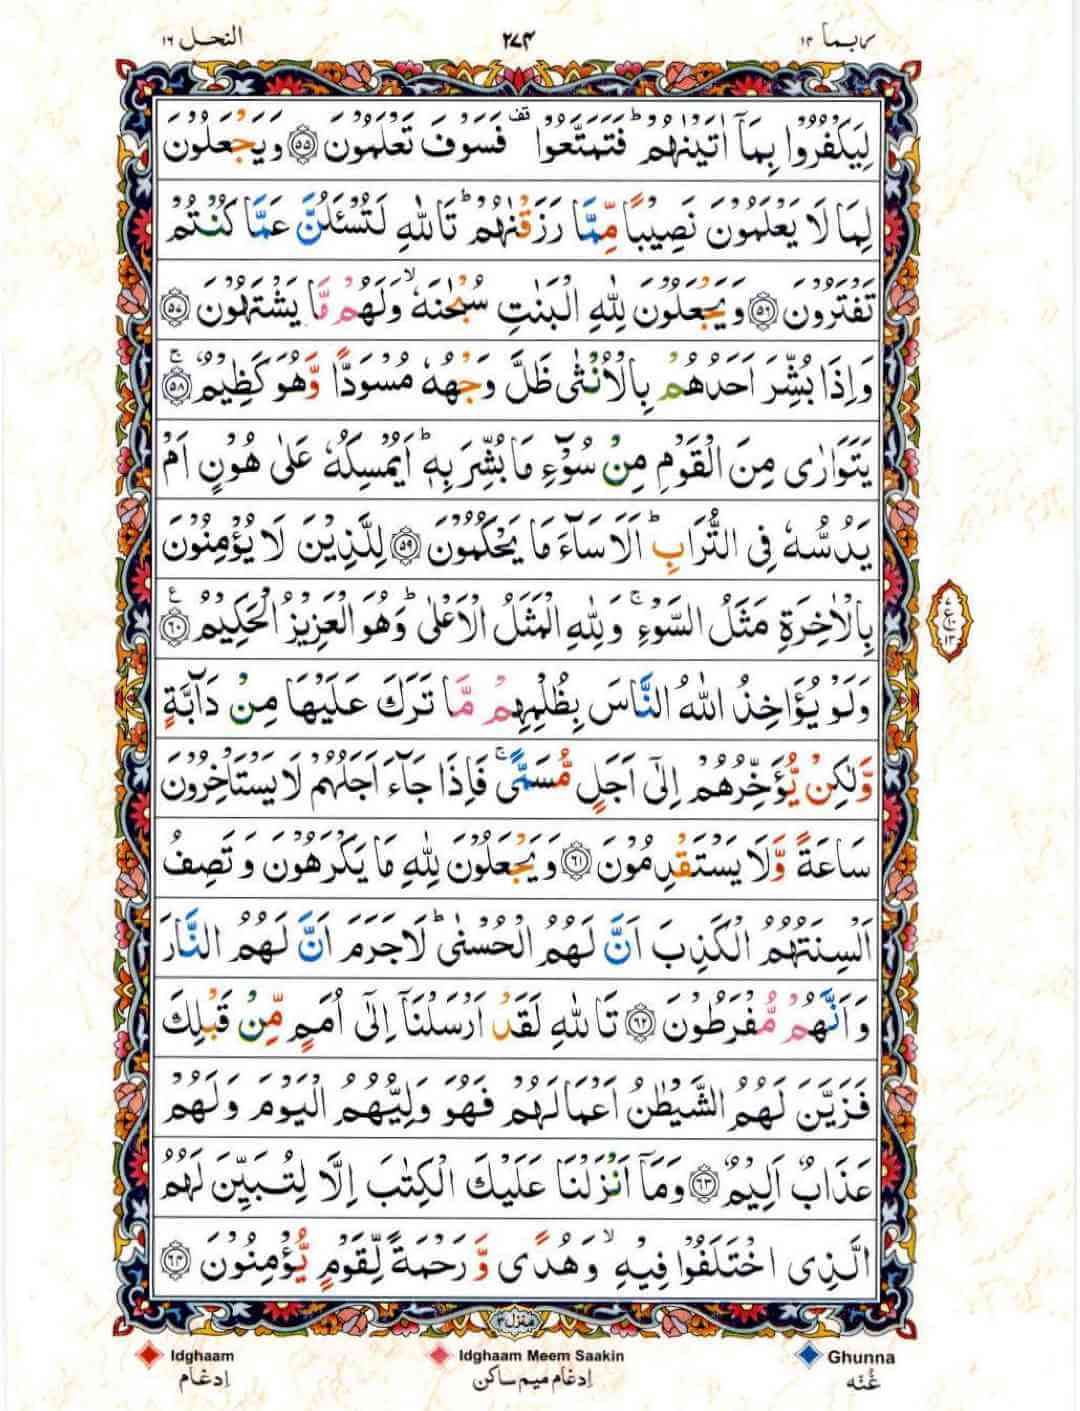 ربما ١٤ ٢٧٤ النحل ١٦
لِيَكْفُرُوْا بِمَآ اٰتَيْنٰهُمْ ؕ فَتَمَتَّعُوْا قف فَسَوْفَ تَعْلَمُوْنَ ﴿۵۵﴾ وَيَجْعَلُوْنَ
لِمَا لَا يَعْلَمُوْنَ نَصِيْبًا مِّمَّا رَزَقْنٰهُمْ ؕ تَاللّٰهِ لَتُسْـَٔلُنَّ عَمَّا كُنْتُمْ
تَفْتَرُوْنَ ﴿۵۶﴾ وَيَجْعَلُوْنَ لِلّٰهِ الْبَنٰتِ سُبْحٰنَهٗ ۙ وَلَهُمْ مَّا يَشْتَهُوْنَ ﴿۵۷﴾
وَاِذَا بُشِّرَ اَحَدُهُمْ بِالْاُنْثٰى ظَلَّ وَجْهُهٗ مُسْوَدًّا وَّهُوَ كَظِيْمٌ ۚ ﴿۵۸﴾
يَتَوَارٰى مِنَ الْقَوْمِ مِنْ سُوْٓءِ مَا بُشِّرَ بِهٖ ؕ اَيُمْسِكُهٗ عَلٰى هُوْنٍ اَمْ
يَدُسُّهٗ فِى التُّرَابِ ؕ اَلَا سَآءَ مَا يَحْكُمُوْنَ ﴿۵۹﴾ لِلَّذِيْنَ لَا يُؤْمِنُوْنَ
بِالْاٰخِرَةِ مَثَلُ السَّوْءِ ۚ وَلِلّٰهِ الْمَثَلُ الْاَعْلٰى ؕ وَهُوَ الْعَزِيْزُ الْحَكِيْمُ ﴿۶۰﴾ ع
وَلَوْ يُؤَاخِذُ اللّٰهُ النَّاسَ بِظُلْمِهِمْ مَّا تَرَكَ عَلَيْهَا مِنْ دَآبَّةٍ
وَّلٰكِنْ يُّؤَخِّرُهُمْ اِلٰٓى اَجَلٍ مُّسَمًّى ۚ فَاِذَا جَآءَ اَجَلُهُمْ لَا يَسْتَاْخِرُوْنَ
سَاعَةً وَّلَا يَسْتَقْدِمُوْنَ ﴿۶۱﴾ وَيَجْعَلُوْنَ لِلّٰهِ مَا يَكْرَهُوْنَ وَتَصِفُ
اَلْسِنَتُهُمُ الْكَذِبَ اَنَّ لَهُمُ الْحُسْنٰى ؕ لَاجَرَمَ اَنَّ لَهُمُ النَّارَ
وَاَنَّهُمْ مُّفْرَطُوْنَ ﴿۶۲﴾ تَاللّٰهِ لَقَدْ اَرْسَلْنَآ اِلٰٓى اُمَمٍ مِّنْ قَبْلِكَ
فَزَيَّنَ لَهُمُ الشَّيْطٰنُ اَعْمَالَهُمْ فَهُوَ وَلِيُّهُمُ الْيَوْمَ وَلَهُمْ
عَذَابٌ اَلِيْمٌ ﴿۶۳﴾ وَمَآ اَنْزَلْنَا عَلَيْكَ الْكِتٰبَ اِلَّا لِتُبَيِّنَ لَهُمُ
الَّذِى اخْتَلَفُوْا فِيْهِ ۙ وَهُدًى وَّرَحْمَةً لِّقَوْمٍ يُّؤْمِنُوْنَ ﴿۶۴﴾
منزل ٣
Idghaam Idghaam Meem Saakin Ghunna
اِدغَام اِدغَام مِیم سَاکن غُنّه